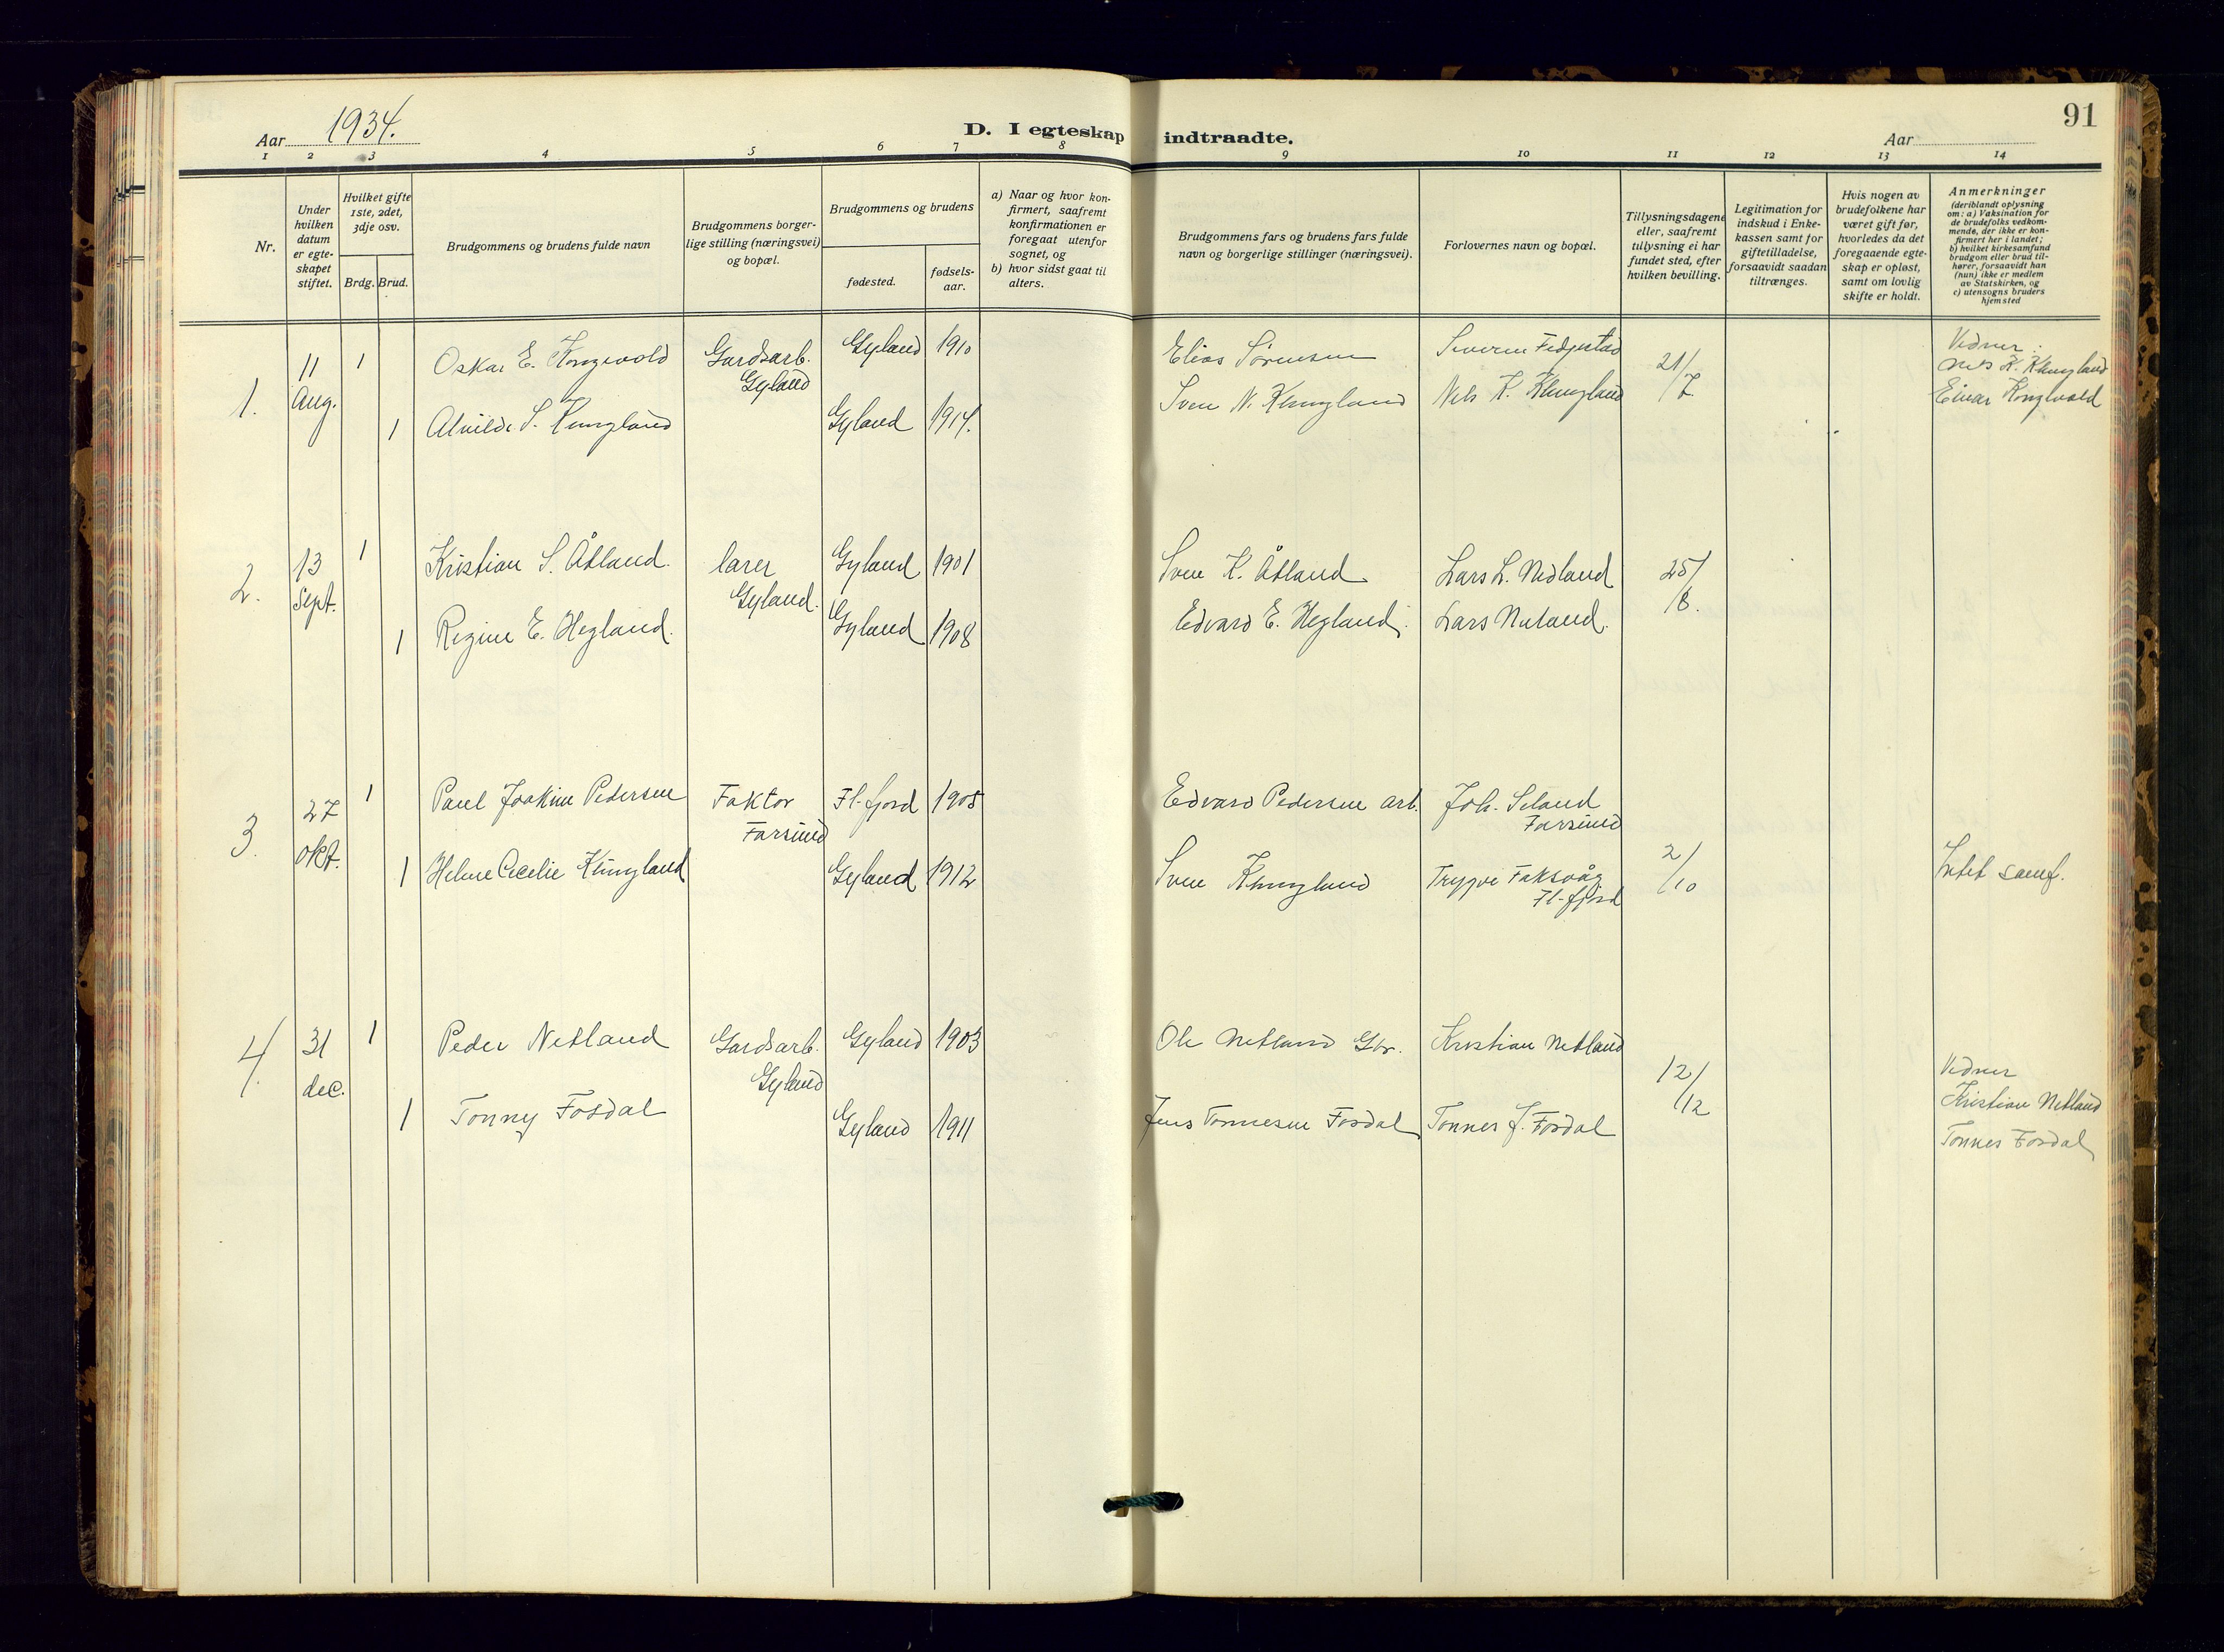 91
Aar 1934.
D. I egteskap indtraadte.
Aar
1 2 3 4 5 6 7 8 9 10 11 12 13 14
Nr.
Under hvilken datum er egte-skapet stiftet.
Hvilket gifte 1ste, 2det, 3dje osv.
Brdg. Brud.
Brudgommens og brudens fulde navn
Brudgommens borger-lige stilling (næringsvei) og bopæl.
Brudgommens og brudens
fødested.
fødsels-aar.
a) Naar og hvor kon-firmert, saafremt konfirmationen er foregaat utenfor sognet, og
b) hvor sidst gaat til alters.
Brudgommens fars og brudens fars fulde navn og borgerlige stillinger (næringsvei).
Forlovernes navn og bopæl.
Tillysningsdagene eller, saafremt tillysning ei har fundet sted, efter hvilken bevilling.
Legitimation for indskud i Enke-kassen samt for giftetilladelse, forsaavidt saadan tiltrænges.
Hvis nogen av brudefolkene har været gift før, hvorledes da det foregaaende egte-skap er opløst, samt om lovlig skifte er holdt.
Anmerkninger
(deriblandt oplysning om: a) Vaksination for de brudefolks vedkom-mende, der ikke er kon-firmert her i landet; b) hvilket kirkesamfund brudgom eller brud til-hører, forsaavidt han (hun) ikke er medlem av Statskirken, og c) utensogns bruders hjemsted
1. 11 Aug. 1 Oskar E. Kongevold Gardsarb. Gyland 1910 Elias Sørensen Severin Fedjestad 21/7 Vidner:
Gyland Nels K. Klungland
1 Alvilde S. Klungland Gyland 1914. Sven N. Klungland Nels K. Klungland Einar Kongevold
2. 13 Sept. 1 Kristian S. Åtland. lærer Gyland 1901 Sven K. Åtland Lars L. Nedland 25/8.
Gyland.
1 Regine E. Hegland. Gyland 1908 Edvard E. Hegland. Lars Nuland.
3. 27 okt. 1 Paul Joakim Pedersen Faktor Fl.fjord 1905 Edvard Pedersen arb. Joh. Seland
Farsund Farsund
1 Helene Cecelie Klungland Gyland 1912 Sven Klungland Trygve Faksvåg 2/10 Intet samf.
Fl-fjord
4. 31 dec. 1 Peder Netland Gardsarb. Gyland 1903 Ole Netland Gbr. Kristian Netland
Gyland 12/12 Vidner
Kristian Netland
1 Tonny Fosdal Gyland 1911 Jens Tønnesen Fosdal Tønnes J. Fosdal
Tønnes Fosdal